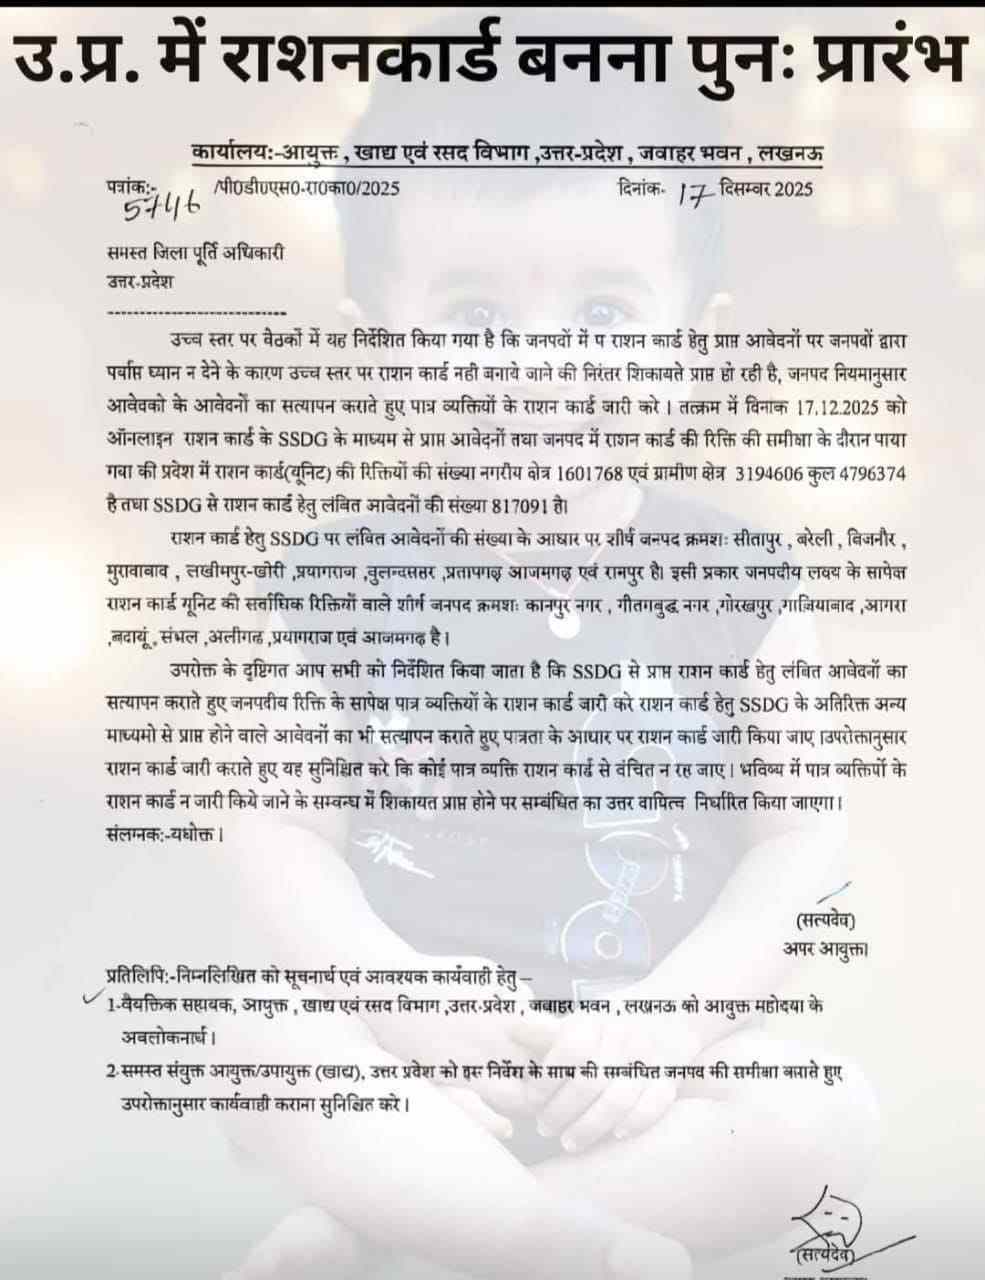 उ.प्र. में राशनकार्ड बनना पुनः प्रारंभ
कार्यालय:-आयुक्त , खाद्य एवं रसद विभाग ,उत्तर-प्रदेश , जवाहर भवन , लखनऊ
पत्रांक:- 5746 /पी0डी0एस0-रा0का0/2025 दिनांक- 17 दिसम्बर 2025
समस्त जिला पूर्ति अधिकारी
उत्तर-प्रदेश
उच्च स्तर पर वैठकों में यह निर्देशित किया गया है कि जनपदों में प राशन कार्ड हेतु प्राप्त आवेदनों पर जनपदों द्वारा
पर्याप्त ध्यान न देने के कारण उच्च स्तर पर राशन कार्ड नही बनाये जाने की निरंतर शिकायते प्राप्त हो रही है, जनपद नियमानुसार
आवेदको के आवेदनों का सत्यापन कराते हुए पात्र व्यक्तियों के राशन कार्ड जारी करे । तत्क्रम में दिनांक 17.12.2025 को
ऑनलाइन राशन कार्ड के SSDG के माध्यम से प्राप्त आवेदनों तथा जनपद में राशन कार्ड की रिक्ति की समीक्षा के दौरान पाया
गया की प्रदेश में राशन कार्ड(यूनिट) की रिक्तियों की संख्या नगरीय क्षेत्र 1601768 एवं ग्रामीण क्षेत्र 3194606 कुल 4796374
है तथा SSDG से राशन कार्ड हेतु लंबित आवेदनों की संख्या 817091 है।
राशन कार्ड हेतु SSDG पर लंबित आवेदनों की संख्या के आधार पर शीर्ष जनपद क्रमशः सीतापुर , बरेली , बिजनौर ,
मुरादाबाद , लखीमपुर-खीरी ,प्रयागराज ,बुलन्दशहर ,प्रतापगढ़ आजमगढ़ एवं रामपुर है। इसी प्रकार जनपदीय लक्ष्य के सापेक्ष
राशन कार्ड यूनिट की सर्वाधिक रिक्तियों वाले शीर्ष जनपद क्रमशः कानपुर नगर , गौतमबुद्ध नगर ,गोरखपुर ,गाज़ियाबाद ,आगरा
,बदायूं, संभल ,अलीगढ ,प्रयागराज एवं आजमगढ़ है ।
उपरोक्त के दृष्टिगत आप सभी को निर्देशित किया जाता है कि SSDG से प्राप्त राशन कार्ड हेतु लंबित आवेदनों का
सत्यापन कराते हुए जनपदीय रिक्ति के सापेक्ष पात्र व्यक्तियों के राशन कार्ड जारी करे राशन कार्ड हेतु SSDG के अतिरिक्त अन्य
माध्यमो से प्राप्त होने वाले आवेदनों का भी सत्यापन कराते हुए पात्रता के आधार पर राशन कार्ड जारी किया जाए ।उपरोक्तानुसार
राशन कार्ड जारी कराते हुए यह सुनिश्चित करे कि कोई पात्र व्यक्ति राशन कार्ड से वंचित न रह जाए । भविष्य में पात्र व्यक्तियों के
राशन कार्ड न जारी किये जाने के सम्बन्ध में शिकायत प्राप्त होने पर सम्बंधित का उत्तर दायित्व निर्धारित किया जाएगा ।
संलग्नक:-यथोक्त ।
(सत्यदेव)
अपर आयुक्त।
प्रतिलिपि:-निम्नलिखित को सूचनार्थ एवं आवश्यक कार्यवाही हेतु–
1-वैयक्तिक सहायक, आयुक्त , खाद्य एवं रसद विभाग ,उत्तर-प्रदेश , जवाहर भवन , लखनऊ को आयुक्त महोदया के
अवलोकनार्थ ।
2-समस्त संयुक्त आयुक्त/उपायुक्त (खाद्य), उत्तर प्रदेश को इस निर्देश के साथ की सम्बंधित जनपद की समीक्षा कराते हुए
उपरोक्तानुसार कार्यवाही कराना सुनिश्चित करे ।
(सत्यदेव)